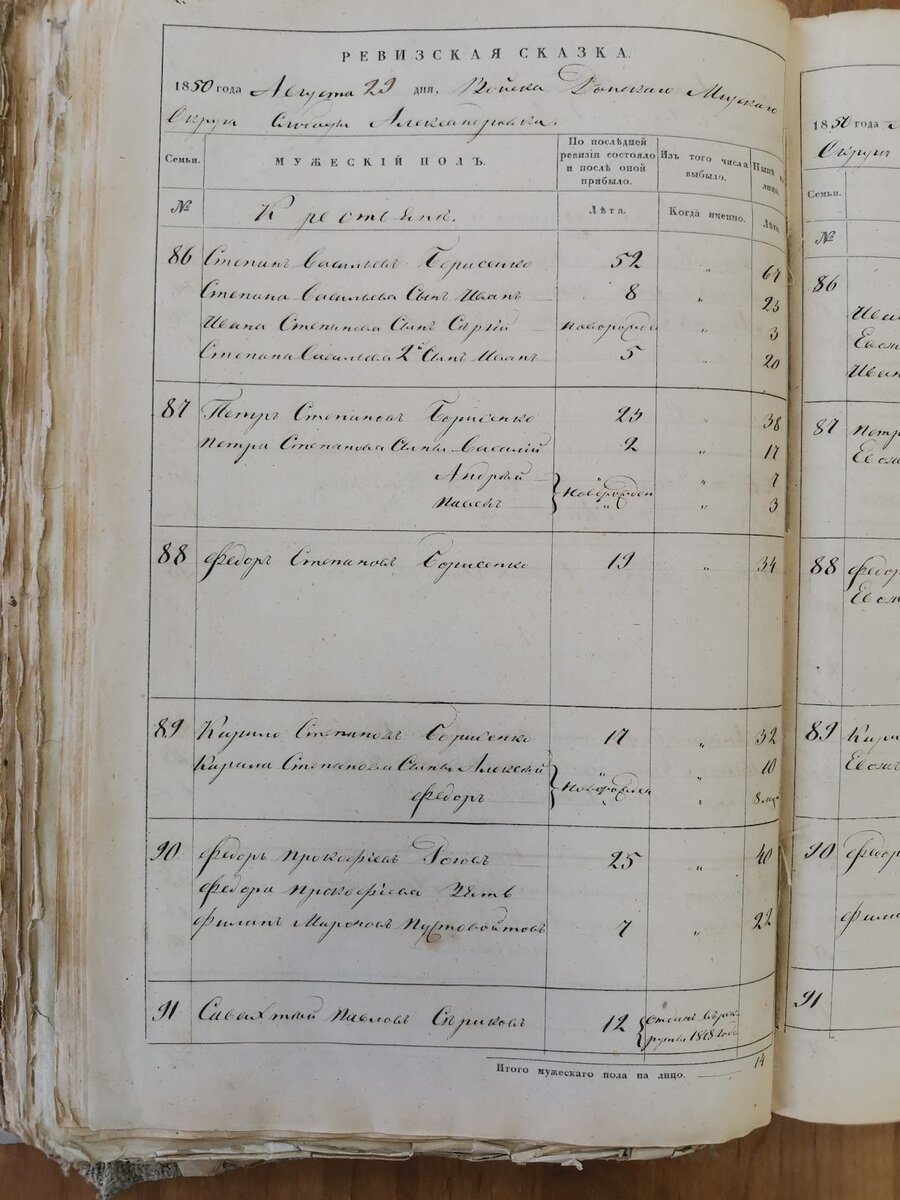 РЕВИЗСКАЯ СКАЗКА.
1850 года Августа 29 дня, Войска Донскаго Мiускаго
Округа Слободы Александровки.
Семьи. МУЖЕСКІЙ ПОЛЪ. По послѣдней ревизіи состояло и послѣ оной прибыло. Изъ того числа выбыло. Нынѣ на лицо.
№ Крестьяне. Лѣта. Когда именно. Лѣта.
86 Степанъ Васильевъ Борисенко 52 " 67
Степана Васильева Сынъ Иванъ 8 " 23
Ивана Степанова Сынъ Сергій новорожде " 3
Степана Васильева 2й Сынъ Иванъ 5 " 20
87 Петръ Степановъ Борисенко 23 " 38
Петра Степанова Сыны Василій 2 " 17
Андрей " " 7
Павелъ Новорожден " 3
88 Федоръ Степановъ Борисенко 19 " 34
89 Кирило Степановъ Борисенко 17 " 32
Кирила Степанова Сыны Алексей " " 10
Федоръ Новорожден " 8 мц
90 Федоръ Прокофіевъ 25 " 40
Федора Прокофіева Зять
Филипъ Мироновъ Пустовойтовъ 7 " 22
91 Павловъ Сериковъ 12 отданъ въ рекруты 1848 года
Итого мужескаго пола на лицо. 14
1850 года
Округи
Семьи.
№
86
Ива
Евож
Иван
87 Петр
Евож
88 Федор
Евож
89 Кири
Евож
90 Федор
Фили
91